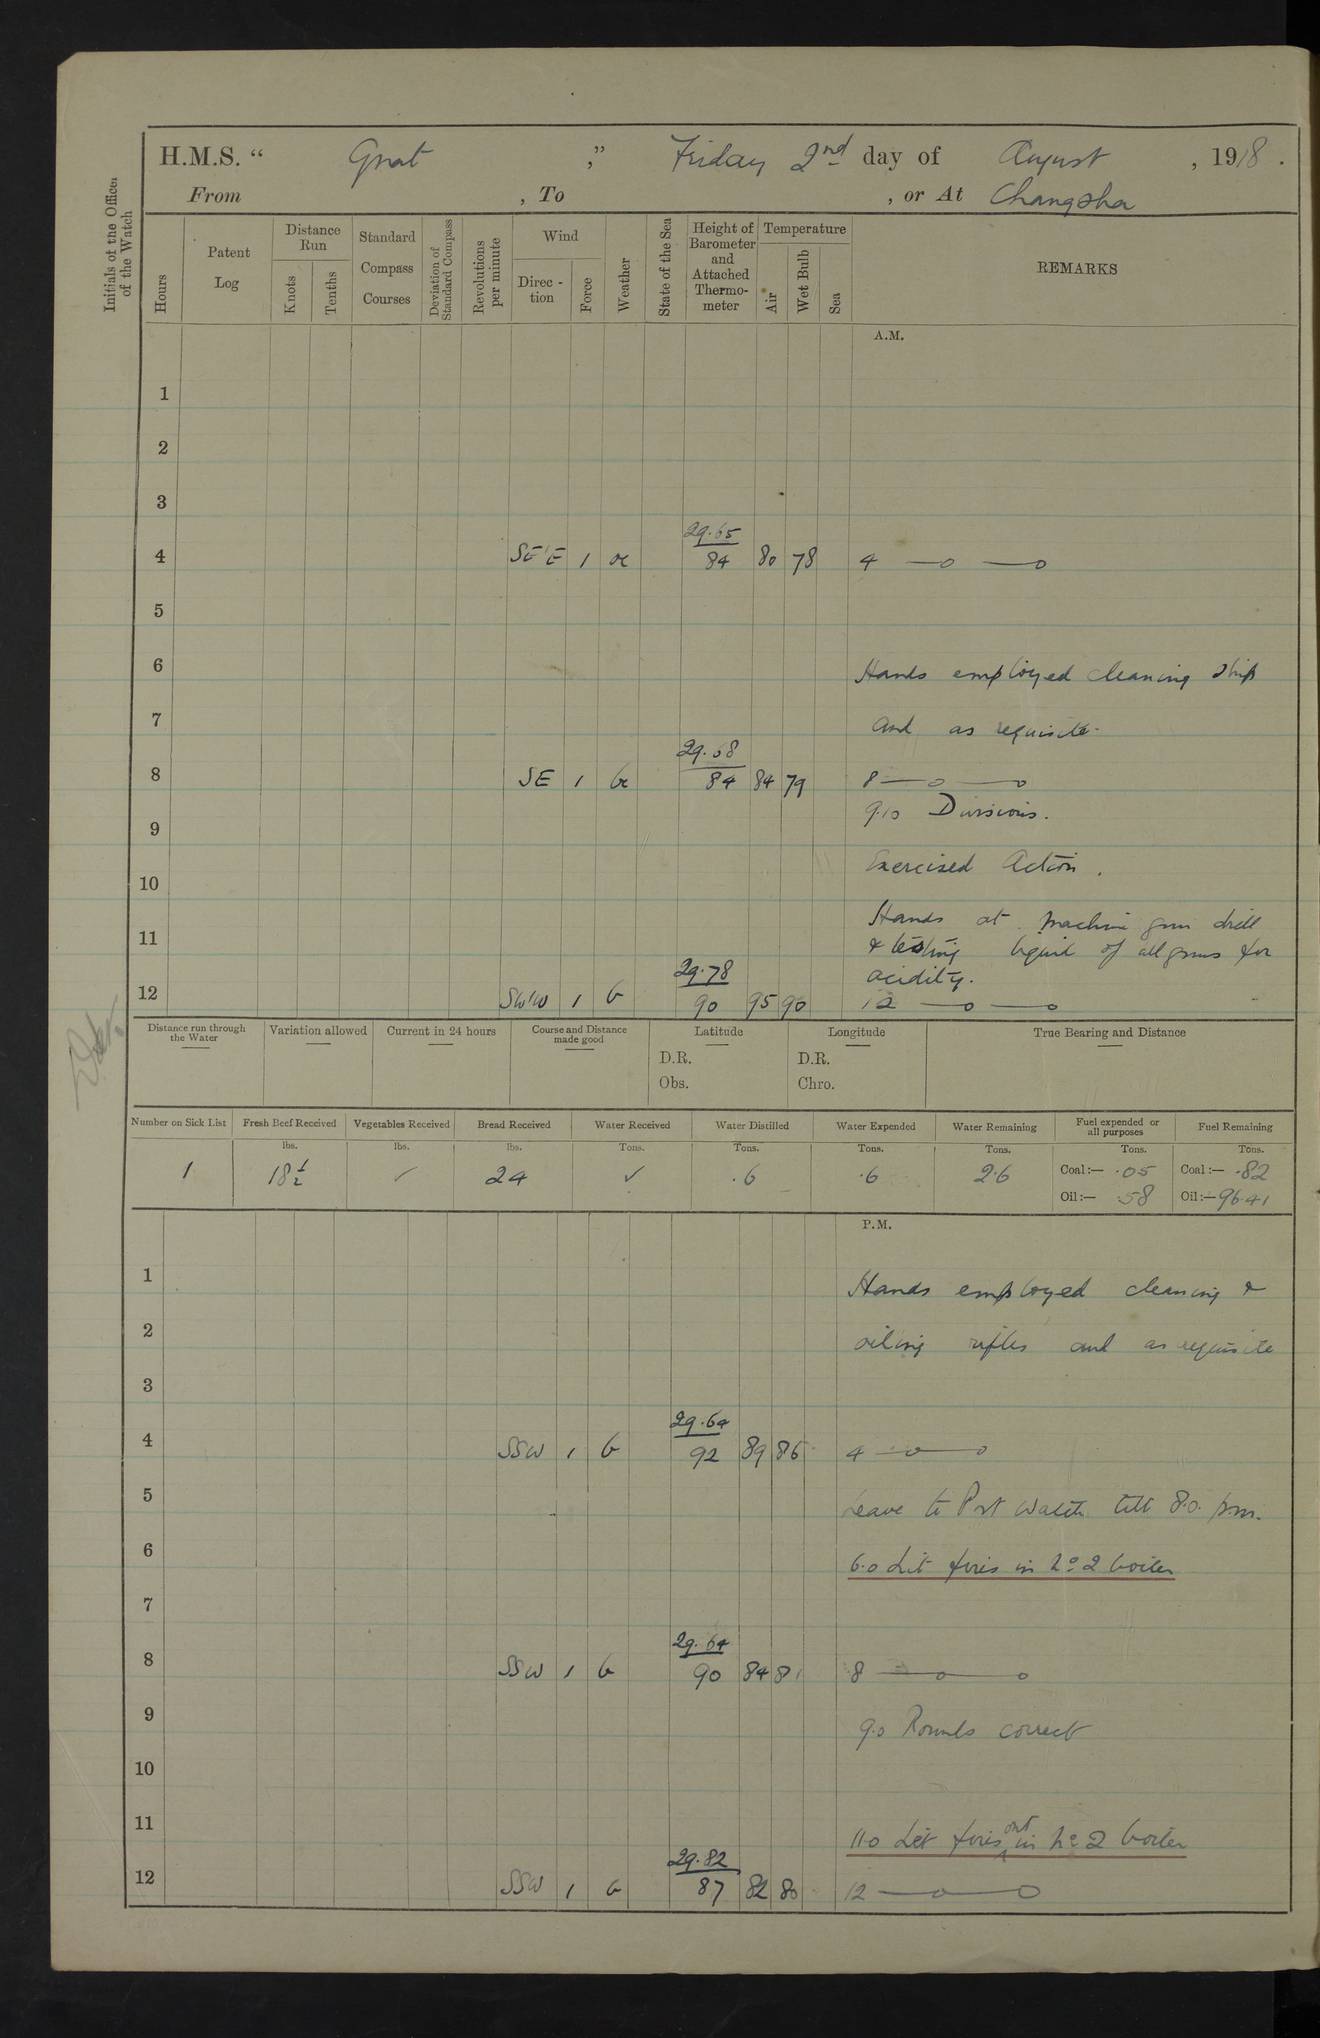 H.M.S. “ Gnat ,” Friday 2nd day of August , 1918 .
From , To , or At Changsha
Initials of the Officer of the Watch
Hours
Patent Log
Distance Run
Knots
Tenths
Standard Compass Courses
Deviation of Standard Compass
Revolutions per minute
Wind
Direc-tion
Force
Weather
State of the Sea
Height of Barometer and Attached Thermo-meter
Temperature
Air
Wet Bulb
Sea
REMARKS
A.M.
1
2
3
29.65
4 SE'E 1 oc 84 80 78 4 —o —o
5
6 Hands employed cleaning ship
7 and as requisite.
29.68
8 SE 1 bc 84 84 79 8 —o —o
9.10 Divisions.
9
Exercised Action.
10
Hands at machine gun drill
11 & testing liquid of all guns for
29.78 acidity.
12 SW'W 1 b 90 95 90 12 —o —o
Distance run through the Water
Variation allowed
Current in 24 hours
Course and Distance made good
Latitude
D.R.
Obs.
Longitude
D.R.
Chro.
True Bearing and Distance
Number on Sick List
Fresh Beef Received
Vegetables Received
Bread Received
Water Received
Water Distilled
Water Expended
Water Remaining
Fuel expended or all purposes
Fuel Remaining
lbs. lbs. lbs. Tons. Tons. Tons. Tons. Tons. Tons.
1 18½ ✓ 24 ✓ .6 .6 2.6 Coal:— .05 Coal:— .82
Oil:— .58 Oil:— 96.41
P.M.
1 Hands employed cleaning &
2 oiling rifles and as requisite
3
29.64
4 SSW 1 b 92 89 86 4 —o —o
5 Leave to Port Watch till 8.0. p.m.
6 6.0 Lit fires in No 2 boiler
7
29.64
8 SSW 1 b 90 84 81 8 —o —o
9 9.0 Rounds correct
10
11 11.0 Let fires out in No 2 boiler
29.82
12 SSW 1 b 87 82 80 12 —o —o